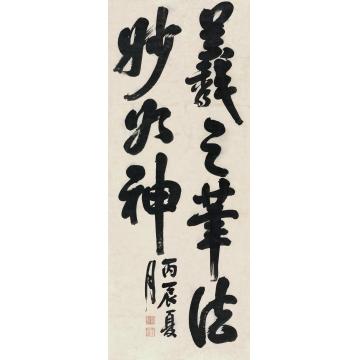 羲之筆法
妙如神
丙辰夏
月